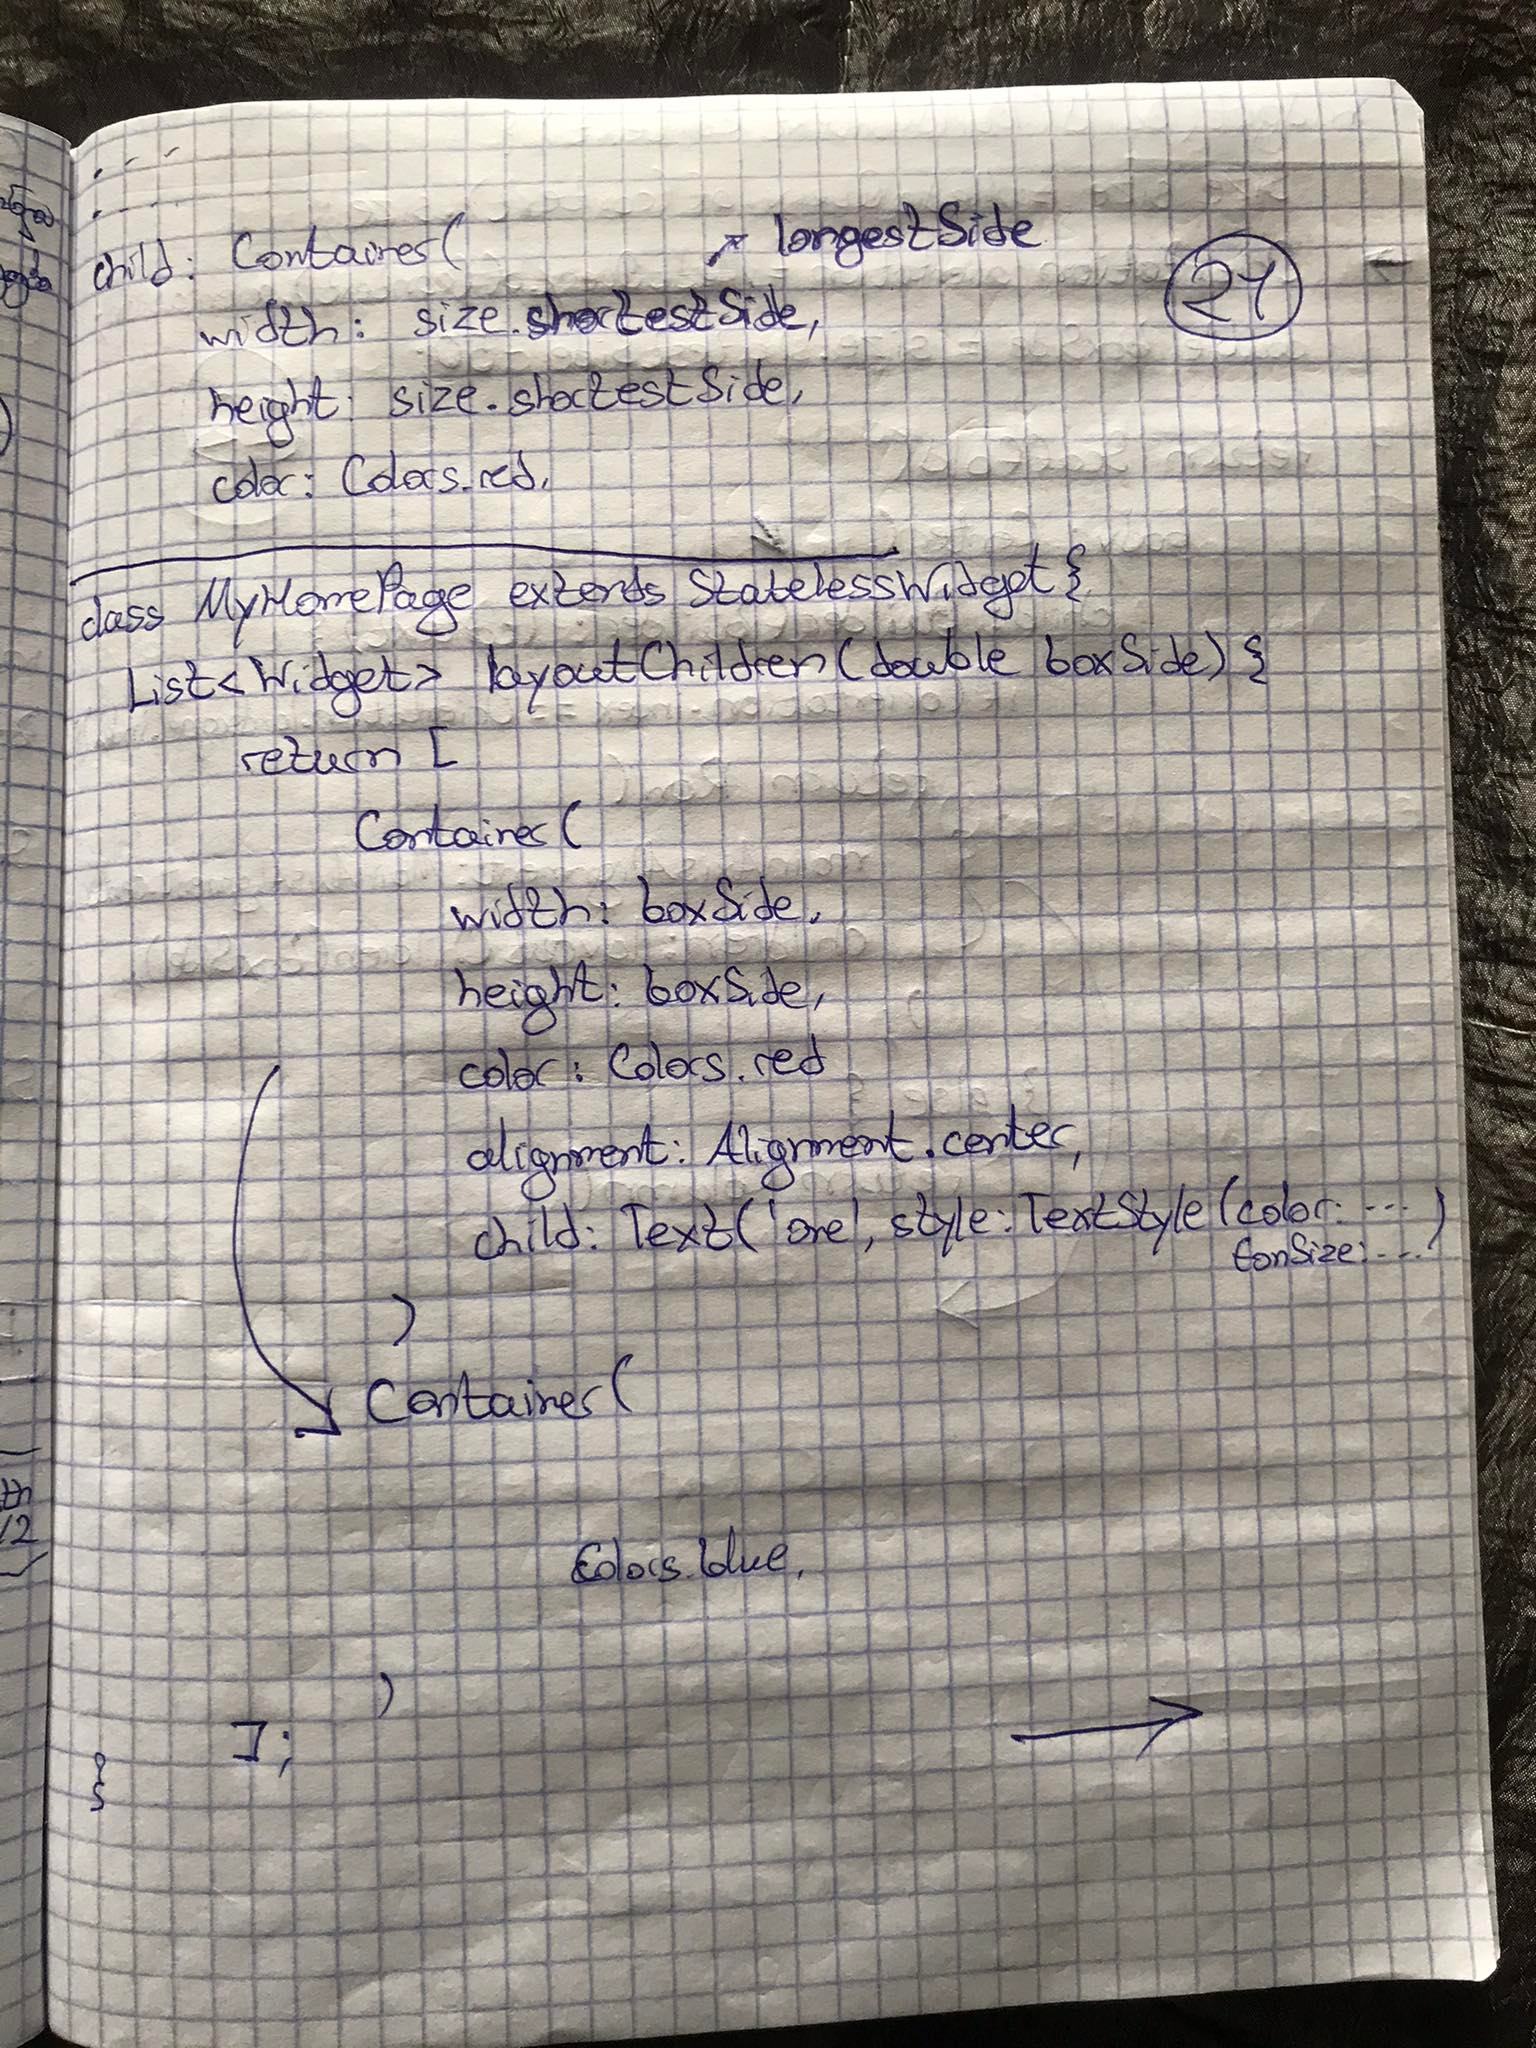 longestSide
child: Container(
24
width: size.shortestSide,
height: size.shortestSide,
color: Colors.red,
class MyHomePage extends StatelessWidget{
List<Widget> layoutChildren(double boxSide){
return [
Container(
width: boxSide,
height: boxSide,
color: Colors.red
alignment: Alignment.center,
child: Text('one', style: TextStyle(color: ... )
fonSize: ....
)
Container(
Colors.blue,
)
];
}
th
/2